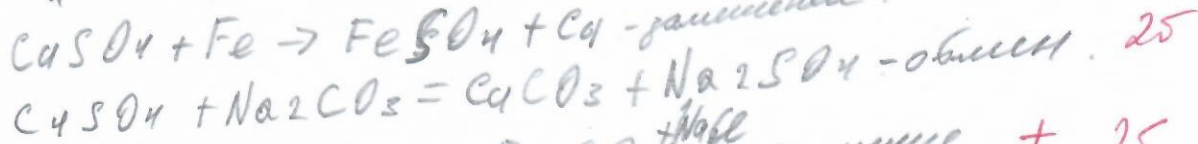 CuSO4 + Fe → FeSO4 + Cu - замещения. 2б
CuSO4 + Na2CO3 = CuCO3 + Na2SO4 - обмен.
+ NaCl + 2б